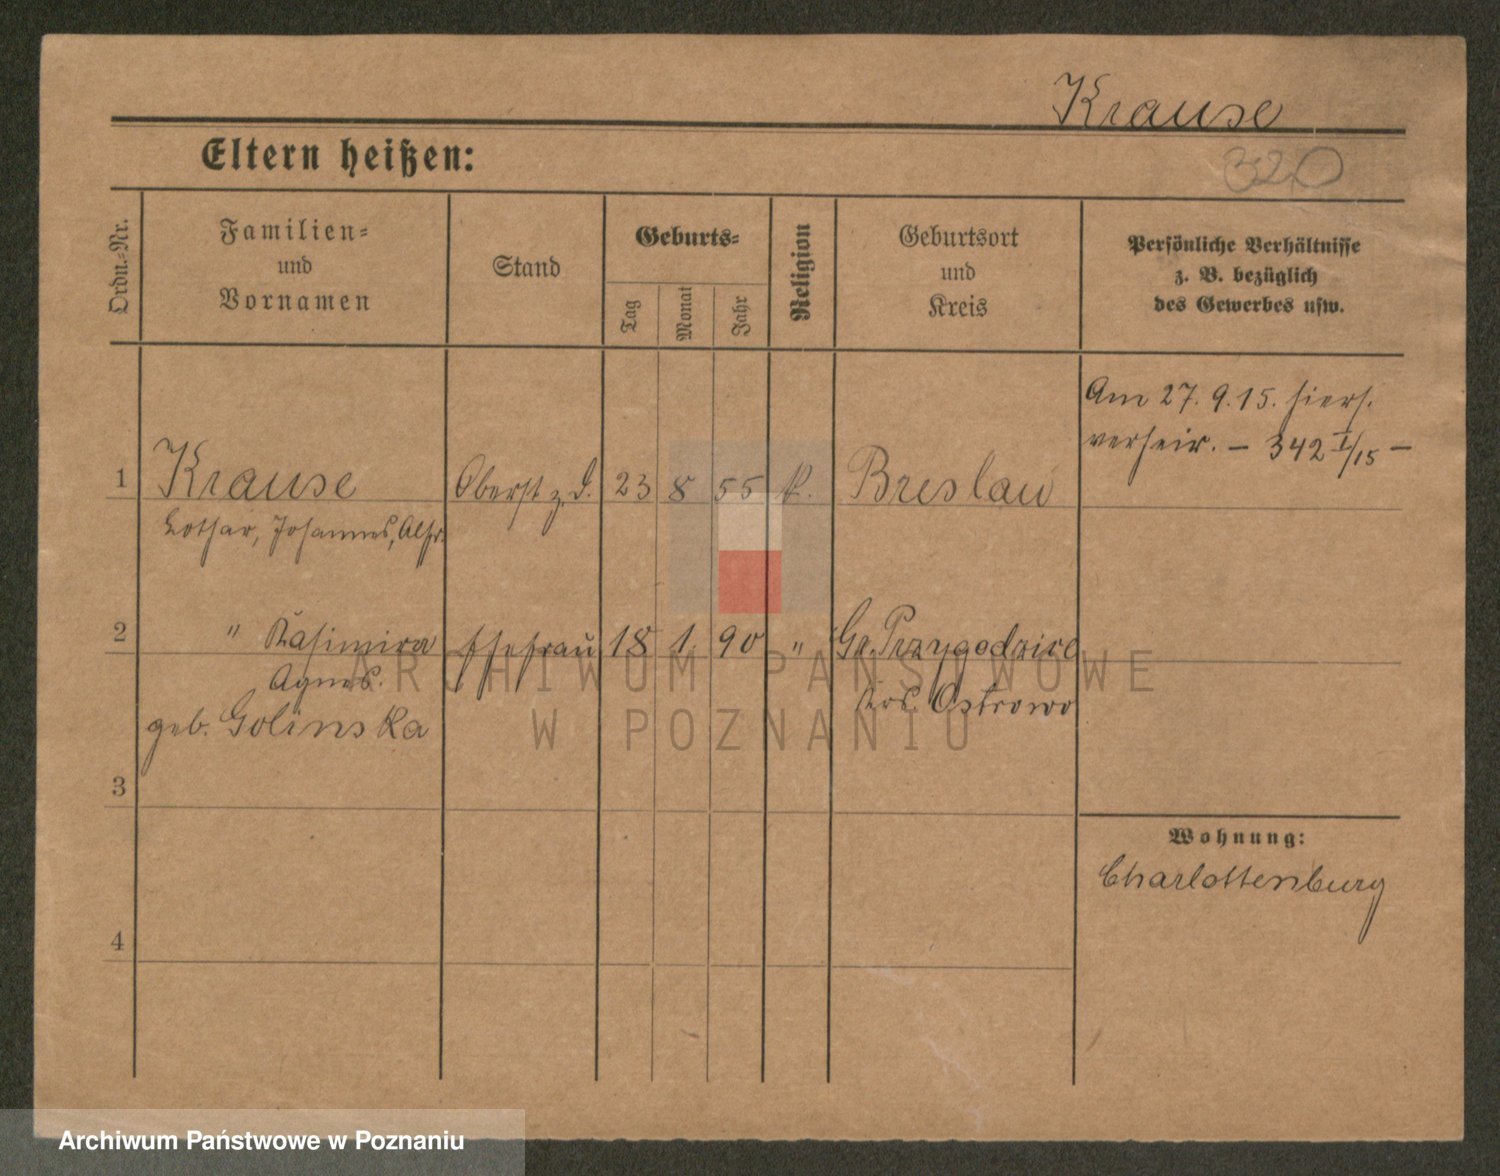 Krause
320
Eltern heißen:
Ordn.=Nr.
Familien=
und
Vornamen
Stand
Geburts=
Tag
Monat
Jahr
Religion
Geburtsort
und
Kreis
Persönliche Verhältnisse
z. B. bezüglich
des Gewerbes usw.
Am 27. 9. 15. hiers.
verheir. – 342 I/15 –
1 Krause Oberst z. D. 23 8 55 k. Breslau
Lothar, Johannes, Alfr.
2 " Kasimira Ehefrau 18 1. 90 " Gr. Przygodzice
Agnes. Krs. Ostrowo
geb. Golinska
3
Wohnung:
Charlottenburg
4
ARCHIWUM PAŃSTWOWE
W POZNANIU
Archiwum Państwowe w Poznaniu